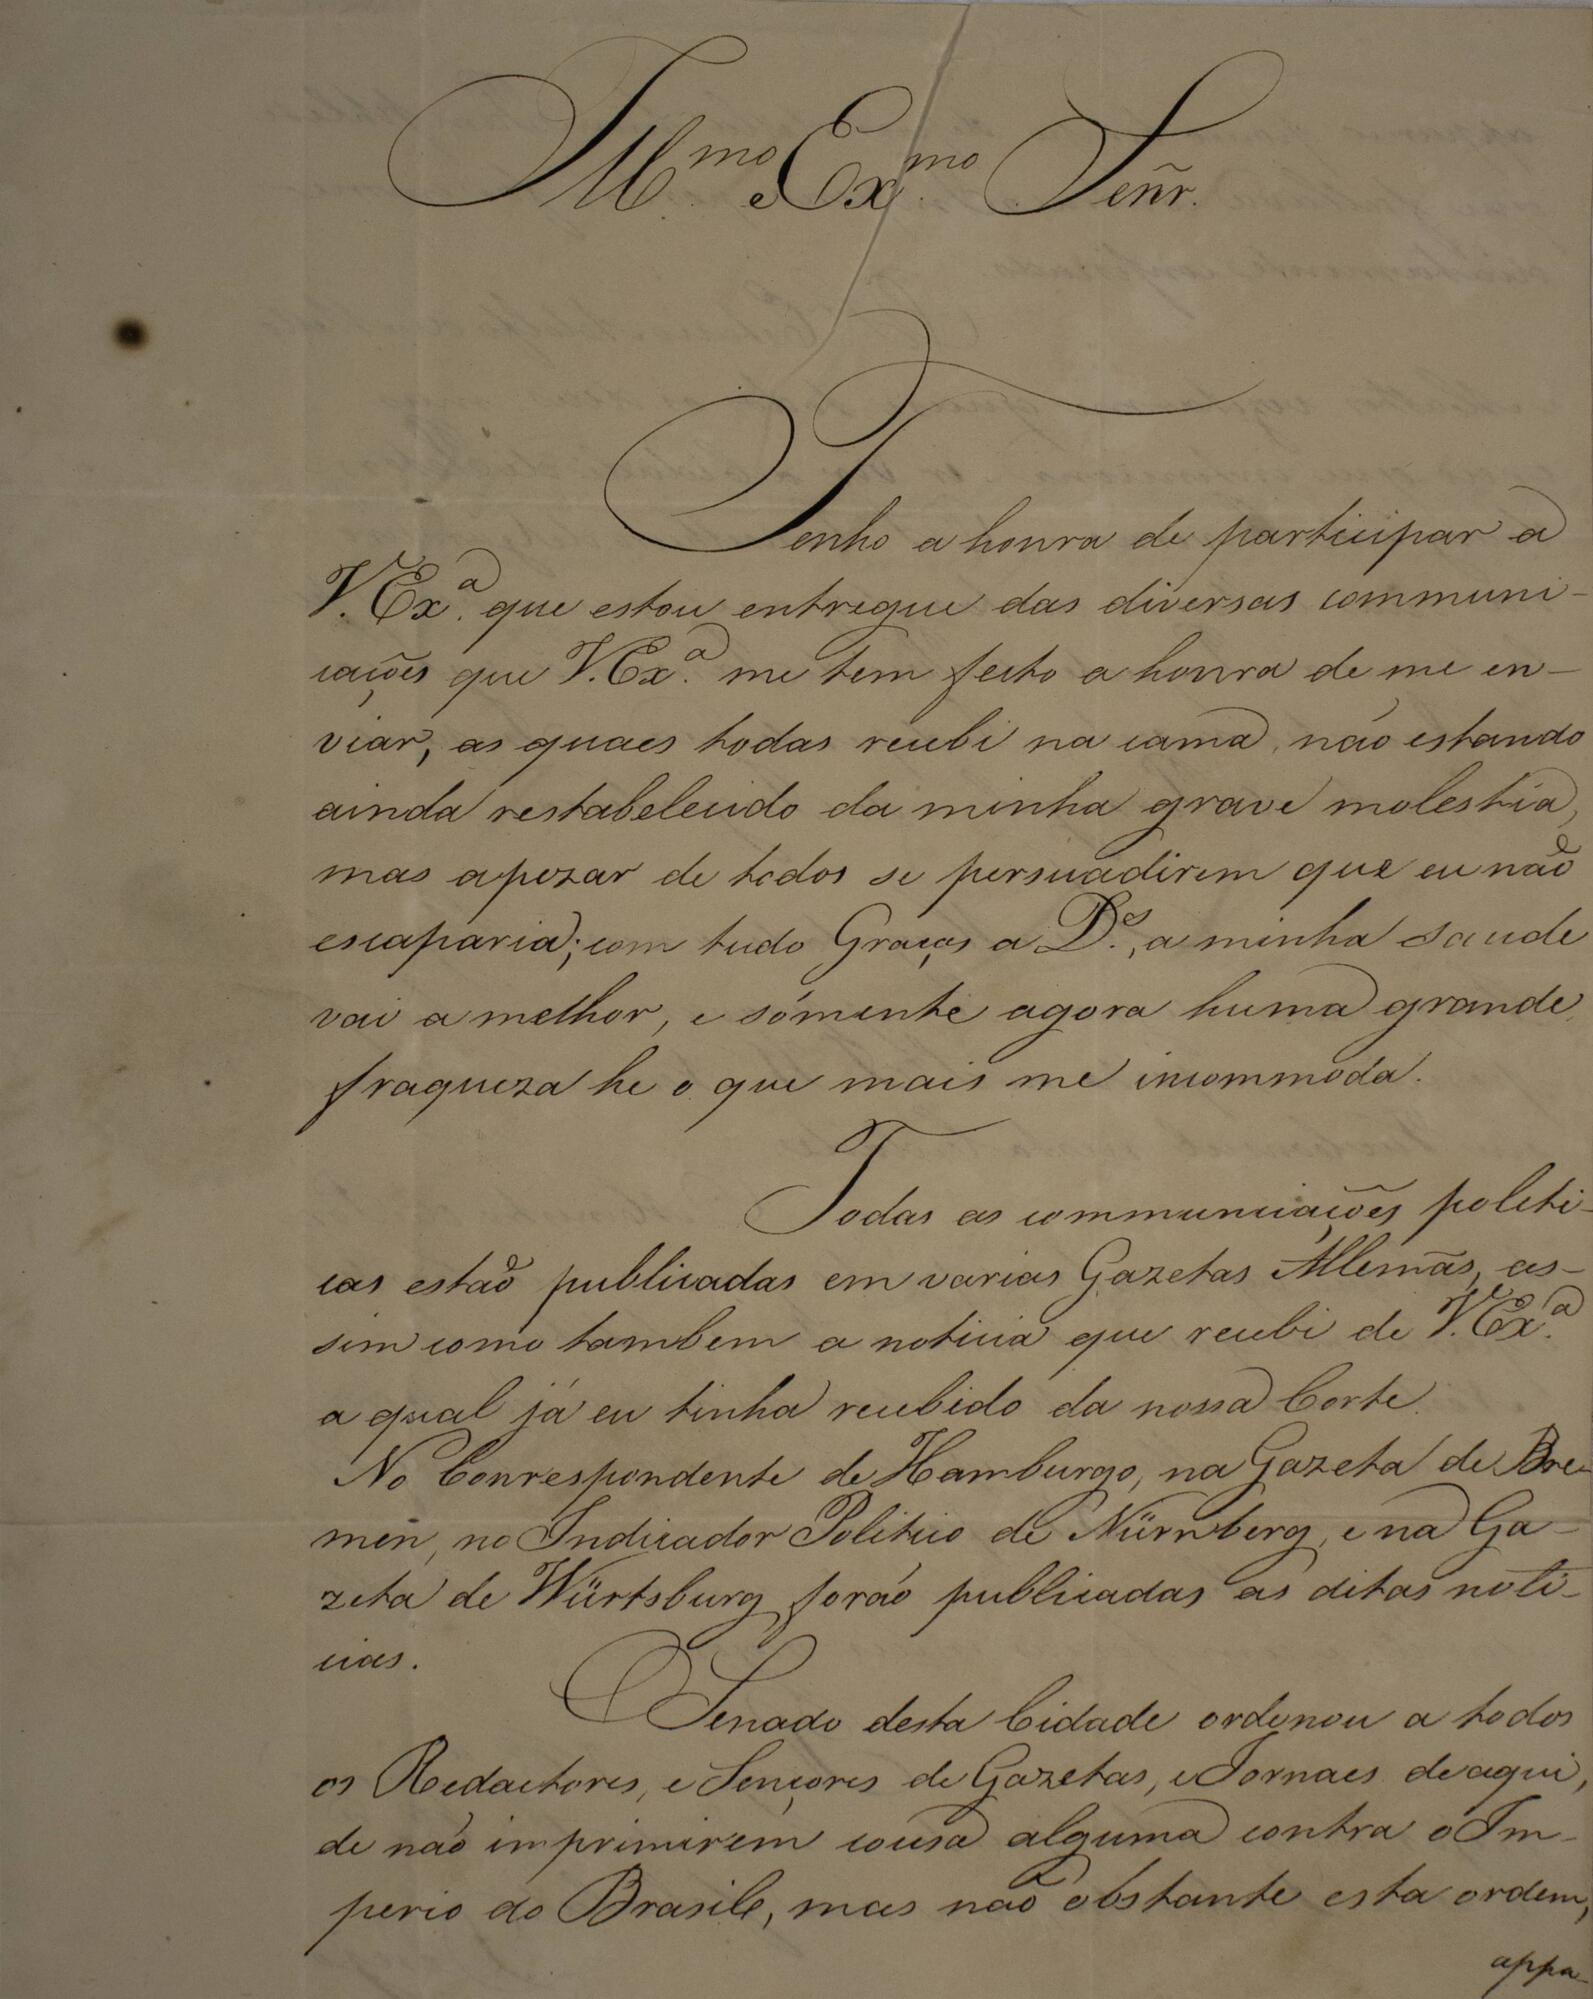 Ill.mo e Ex.mo Señr.
Tenho a honra de participar a
V. Ex.a que estou entregue das diversas communi-
cações que V. Ex.a me tem feito a honra de me en-
viar, as quaes todas recebi na cama, não estando
ainda restabelecido da minha grave molestia,
mas apezar de todos se persuadirem que eu não
escaparia; com tudo Graças a D.s, a minha saude
vai a melhor, e sómente agora huma grande
fraqueza he o que mais me incommoda.
Todas as communicações politi-
cas estão publicadas em varias Gazetas Allemãs, as-
sim como tambem a noticia que recebi de V. Ex.a
a qual já eu tinha recebido da nossa Corte.
No Correspondente de Hamburgo, na Gazeta de Bre-
men, no Indicador Politico de Nürnberg, e na Ga-
zeta de Würtsburg forão publicadas as ditas noti-
cias.
O Senado desta Cidade ordenou a todos
os Redactores, e Sençores de Gazetas, e Jornaes de aqui,
de não imprimirem cousa alguma contra o Im-
perio do Brasil, mas não obstante esta ordem,
appa-